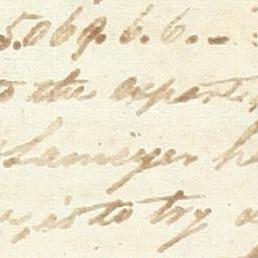 5.069.6.6. –
to the
Lameyer he
is to try